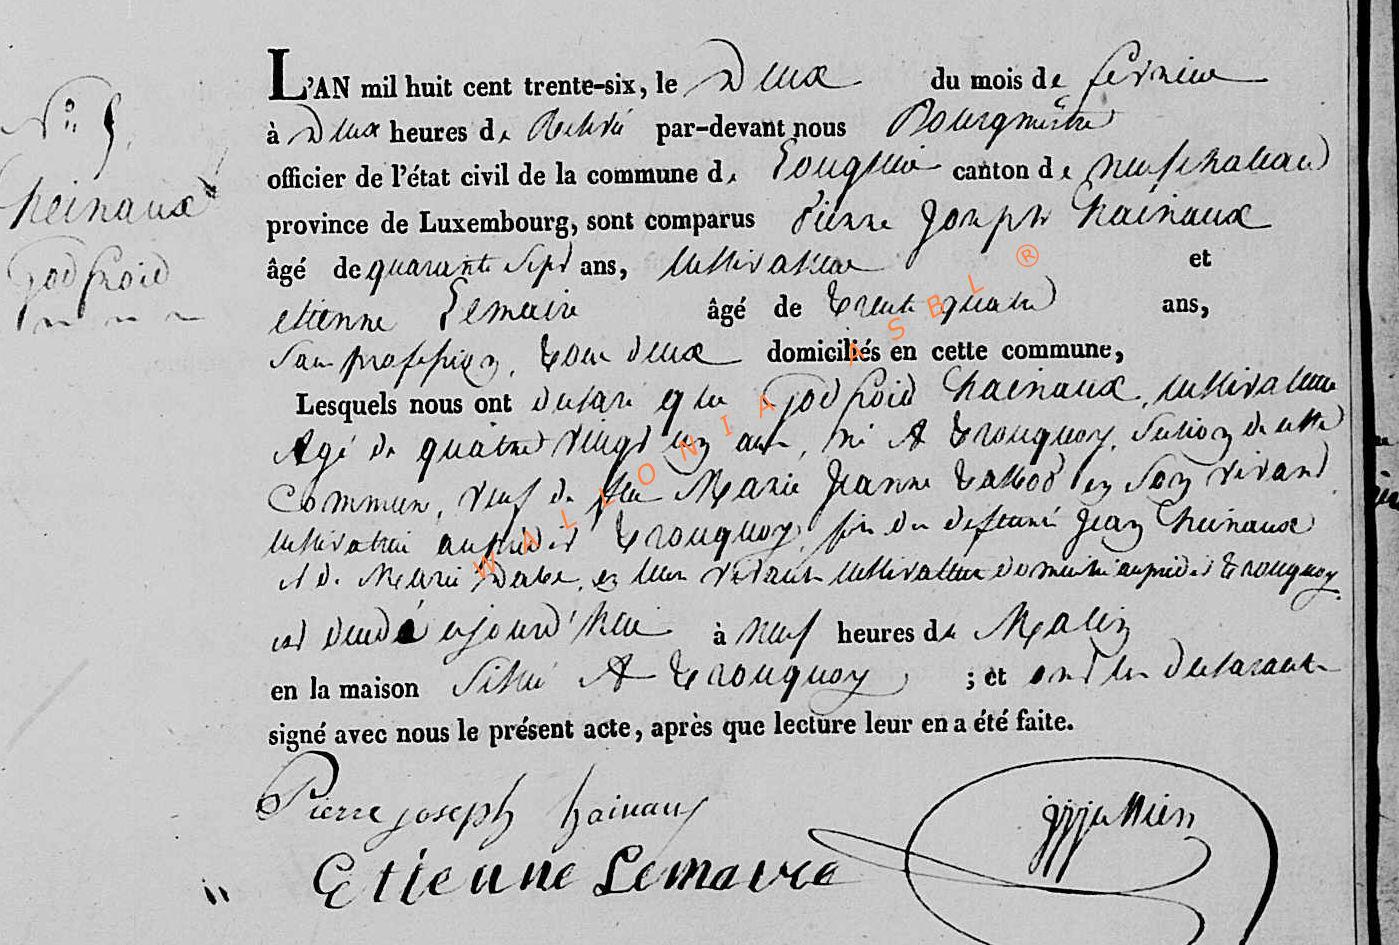 N° 5
hainaux
godfroid
L'AN mil huit cent trente-six, le Deux du mois de fevrier
à Deux heures de Relevée par-devant nous Bourgmestre
officier de l'état civil de la commune de Longlier canton de neufchateau
province de Luxembourg, sont comparus Pierre Joseph hainaux
âgé de quarante Sept ans, cultivateur et
etienne Lemaire âgé de trente quatre ans,
San profession, tous deux domiciliés en cette commune,
Lesquels nous ont declaré que Godfroid hainaux, cultivateur
Agé de quatre vingt un ans, né A tronquoy, Section de cette
Commune, veuf de feu Marie Jeanne en Son vivant
cultivatrice audit tronquoy, fils de defunt Jean hainaux
et de Marie en leur vivant cultivateur tronquoy
est décédé aujourd'hui à neuf heures du Matin
en la maison Située A tronquoy ; et ont les declarants
signé avec nous le présent acte, après que lecture leur en a été faite.
Pierre joseph hainaux
Etienne Lemaire
WALLONIA ASBL ®